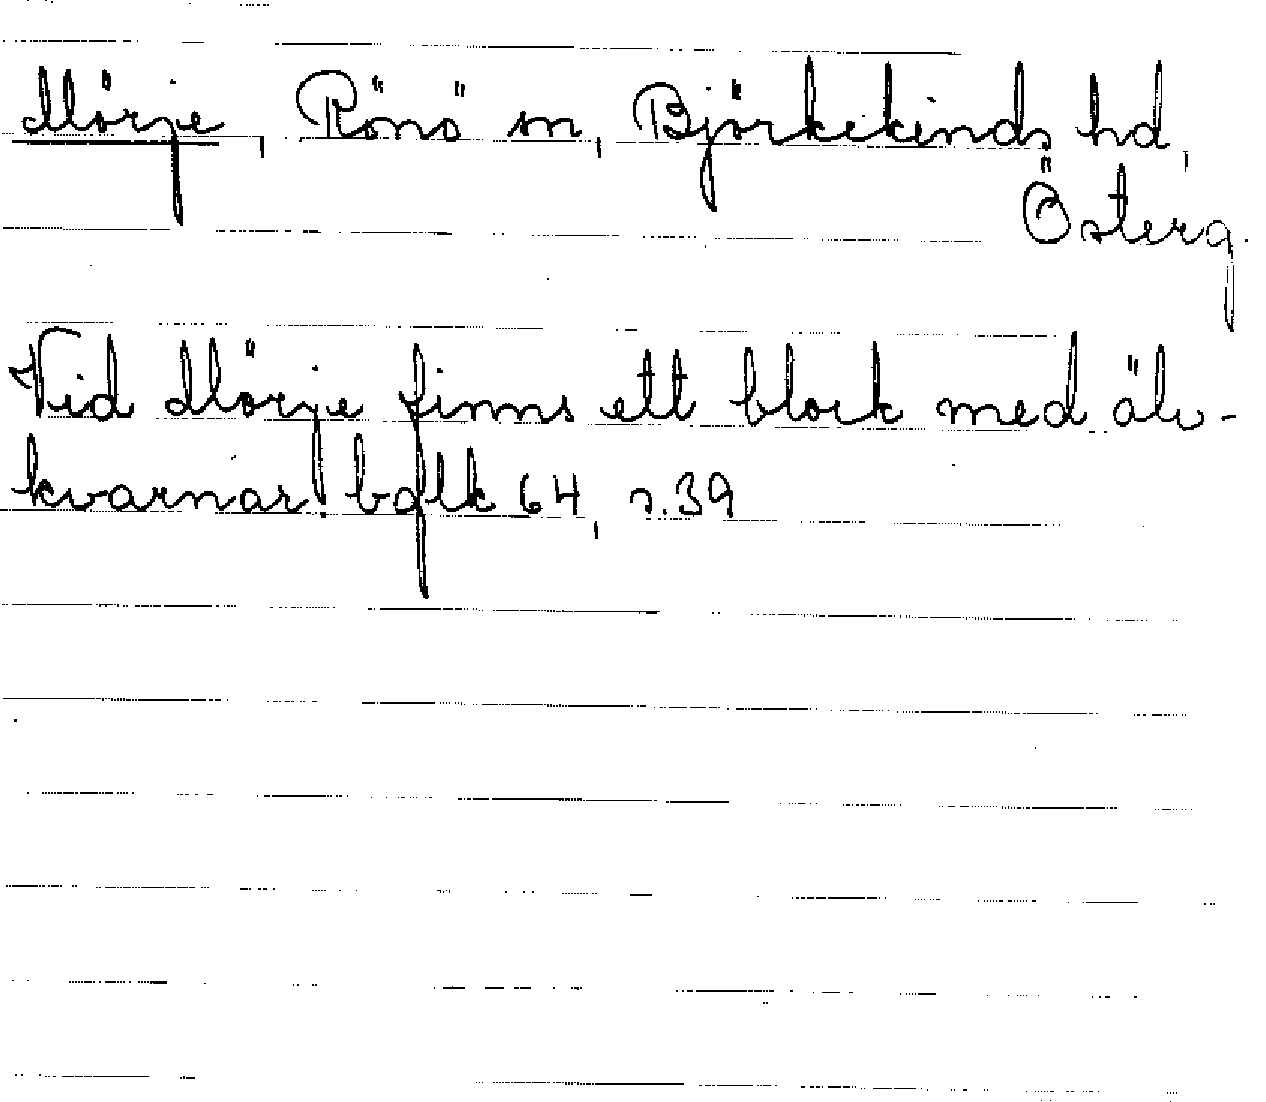 Mörje, Rönö sn, Björkekinds hd,
Österg.
Vid Mörje finns ett block med älv-
kvarnar. bglk 64, s.39